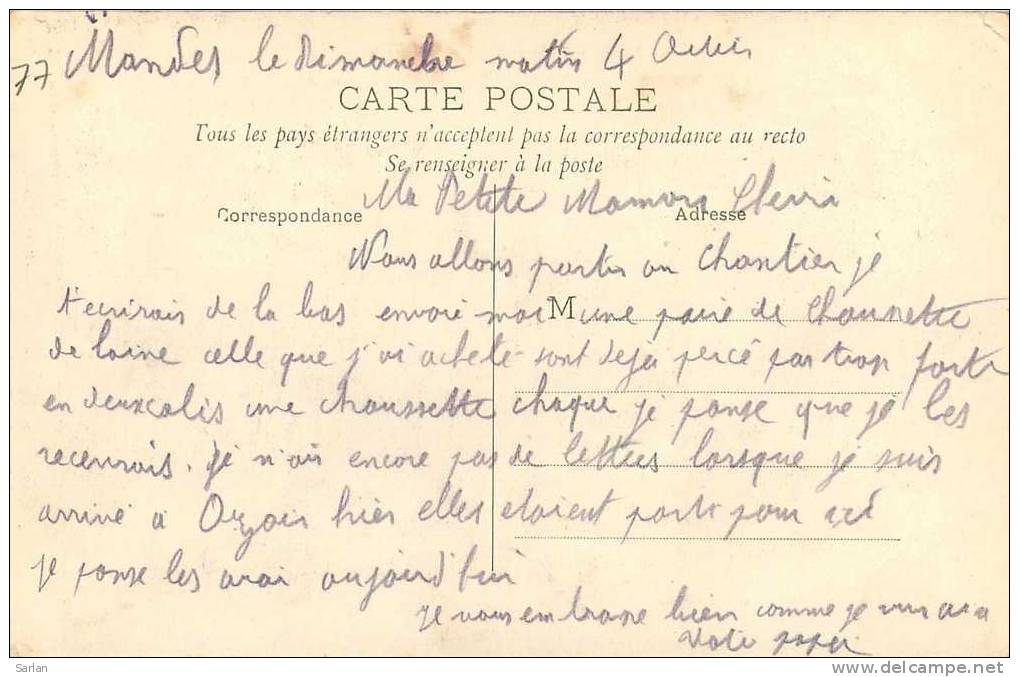 77 Mandes le dimanche matin 4
CARTE POSTALE
Tous les pays étrangers n'acceptent pas la correspondance au recto
Se renseigner à la poste
Ma Petite Maman Cherie
Correspondance
Adresse
Nous allons partir au chantier je
t'ecrirais de la bas envoie moi une paire de chaussette
M
de laine celle que j'ai acheté sont deja percé pas trop forte
en deux colis une chaussette chaque je panse que je les
recevrais. Je n'ais encore pas de lettres lorsque je suis
arrivé a hier elles etaient parti pour ici
je panse les avoir aujourd'hui
je vous embrasse bien comme je vous
Votre
Sarlan
www.delcampe.net